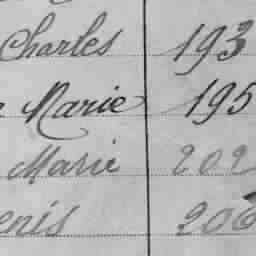 Charles 193
Marie 195
Marie 202
enis 206